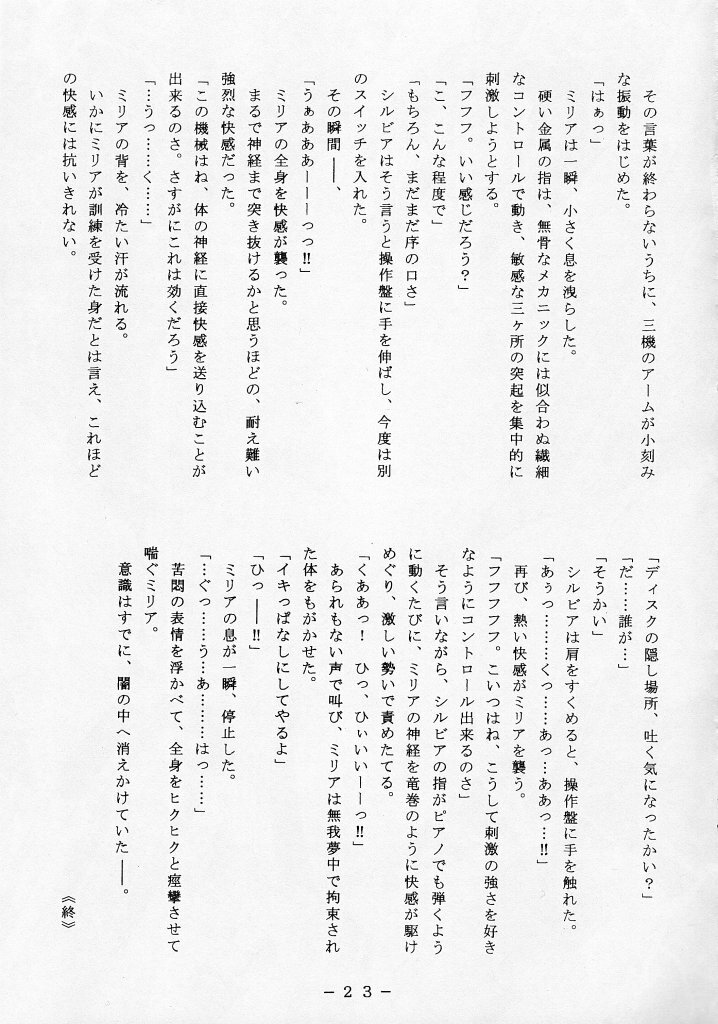 その言葉が終わらないうちに、三機のアームが小刻み
な振動をはじめた。
「はぁっ」
　ミリアは一瞬、小さく息を洩らした。
　硬い金属の指は、無骨なメカニックには似合わぬ繊細
なコントロールで動き、敏感な三ヶ所の突起を集中的に
刺激しようとする。
「フフフ。いい感じだろう？」
「こ、こんな程度で」
「もちろん、まだまだ序の口さ」
　シルビアはそう言うと操作盤に手を伸ばし、今度は別
のスイッチを入れた。
　その瞬間――、
「うぁあああーーーっっ!!」
　ミリアの全身を快感が襲った。
　まるで神経まで突き抜けるかと思うほどの、耐え難い
強烈な快感だった。
「この機械はね、体の神経に直接快感を送り込むことが
出来るのさ。さすがにこれは効くだろう」
「…うっ……く……」
　ミリアの背を、冷たい汗が流れる。
　いかにミリアが訓練を受けた身だとは言え、これほど
の快感には抗いきれない。
「ディスクの隠し場所、吐く気になったかい？」
「だ……誰が…」
「そうかい」
　シルビアは肩をすくめると、操作盤に手を触れた。
「あぅっ………くっ……あっ…ああっ…!!」
　再び、熱い快感がミリアを襲う。
「フフフフフ。こいつはね、こうして刺激の強さを好き
なようにコントロール出来るのさ」
　そう言いながら、シルビアの指がピアノでも弾くよう
に動くたびに、ミリアの神経を竜巻のように快感が駆け
めぐり、激しい勢いで責めたてる。
「くああっ！　ひっ、ひぃいいーーっ!!」
　あられもない声で叫び、ミリアは無我夢中で拘束され
た体をもがかせた。
「イキっぱなしにしてやるよ」
「ひっ――!!」
　ミリアの息が一瞬、停止した。
「…ぐっ……う…あ………はっ……」
　苦悶の表情を浮かべて、全身をヒクヒクと痙攣させて
喘ぐミリア。
　意識はすでに、闇の中へ消えかけていた――。
《終》
－２３－